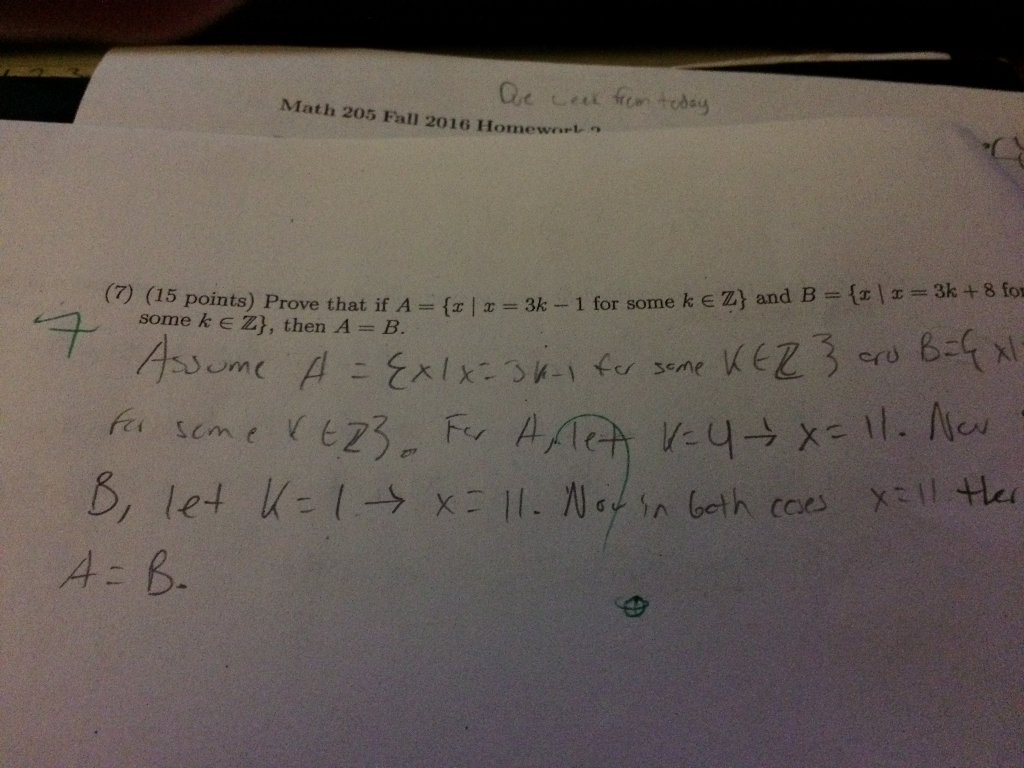 Due week from today
Math 205 Fall 2016 Homework
(7) (15 points) Prove that if A = {x | x = 3k − 1 for some k ∈ ℤ} and B = {x | x = 3k + 8 for
some k ∈ ℤ}, then A = B.
7
Assume A = {x | x = 3k-1 for some K ∈ ℤ } and B = { x |
for some K ∈ ℤ}. For A, let K = 4 → x = 11. Now
B, let K = 1 → x = 11. Now in both cases x = 11
A = B.